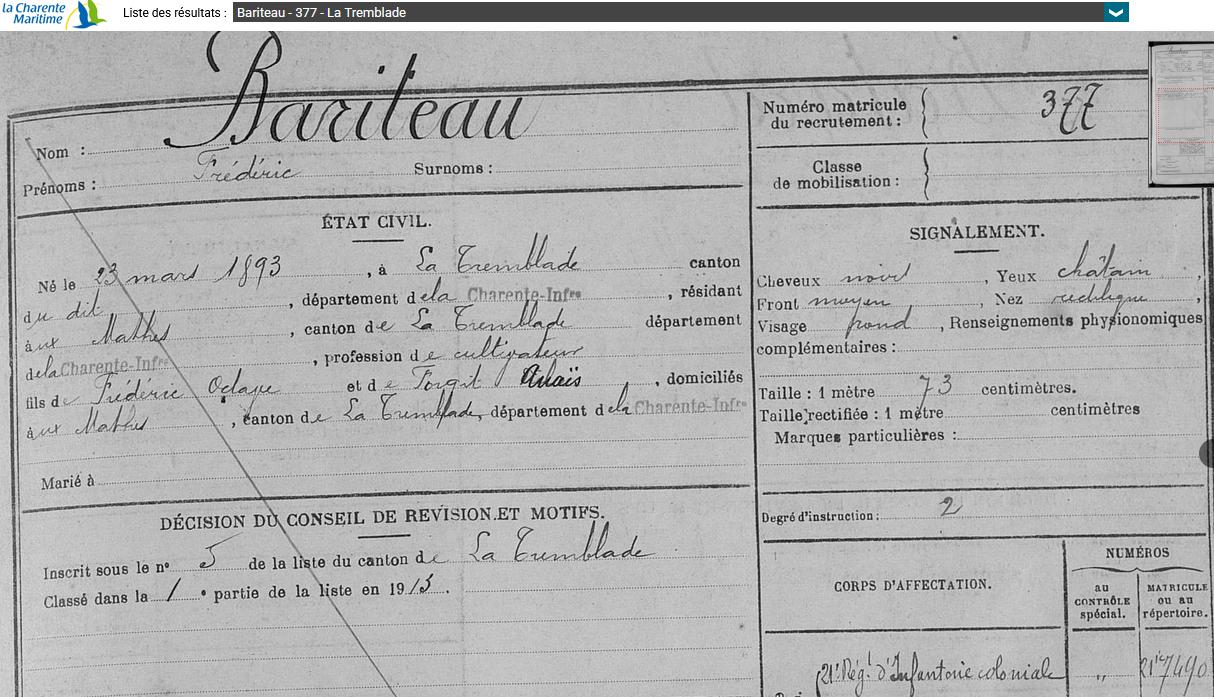 la Charente
Maritime
Liste des résultats :
Bariteau - 377 - La Tremblade
Nom : Bariteau
Prénoms : Frédéric Surnoms :
Numéro matricule
du recrutement : 377
Classe
de mobilisation :
ÉTAT CIVIL.
Né le 23 mars 1893, à La Tremblade canton
du dit, département de la Charente-Infre, résidant
aux Mathes, canton de La Tremblade département
de la Charente-Infre, profession de cultivateur
fils de Frédéric Octave et de Forgit Anaïs, domiciliés
aux Mathes, canton de La Tremblade, département de la Charente-Infre
Marié à
SIGNALEMENT.
Cheveux noirs, Yeux châtain,
Front moyen, Nez rectiligne,
Visage rond, Renseignements physionomiques
complémentaires :
Taille : 1 mètre 73 centimètres.
Taille rectifiée : 1 mètre centimètres
Marques particulières :
Degré d'instruction : 2
DÉCISION DU CONSEIL DE REVISION ET MOTIFS.
Inscrit sous le no 5 de la liste du canton de La Tremblade
Classé dans la 1 e partie de la liste en 1913.
CORPS D'AFFECTATION.
NUMÉROS
au
CONTRÔLE
spécial.
MATRICULE
ou au
répertoire.
21e Régt d'Infanterie coloniale " 7490